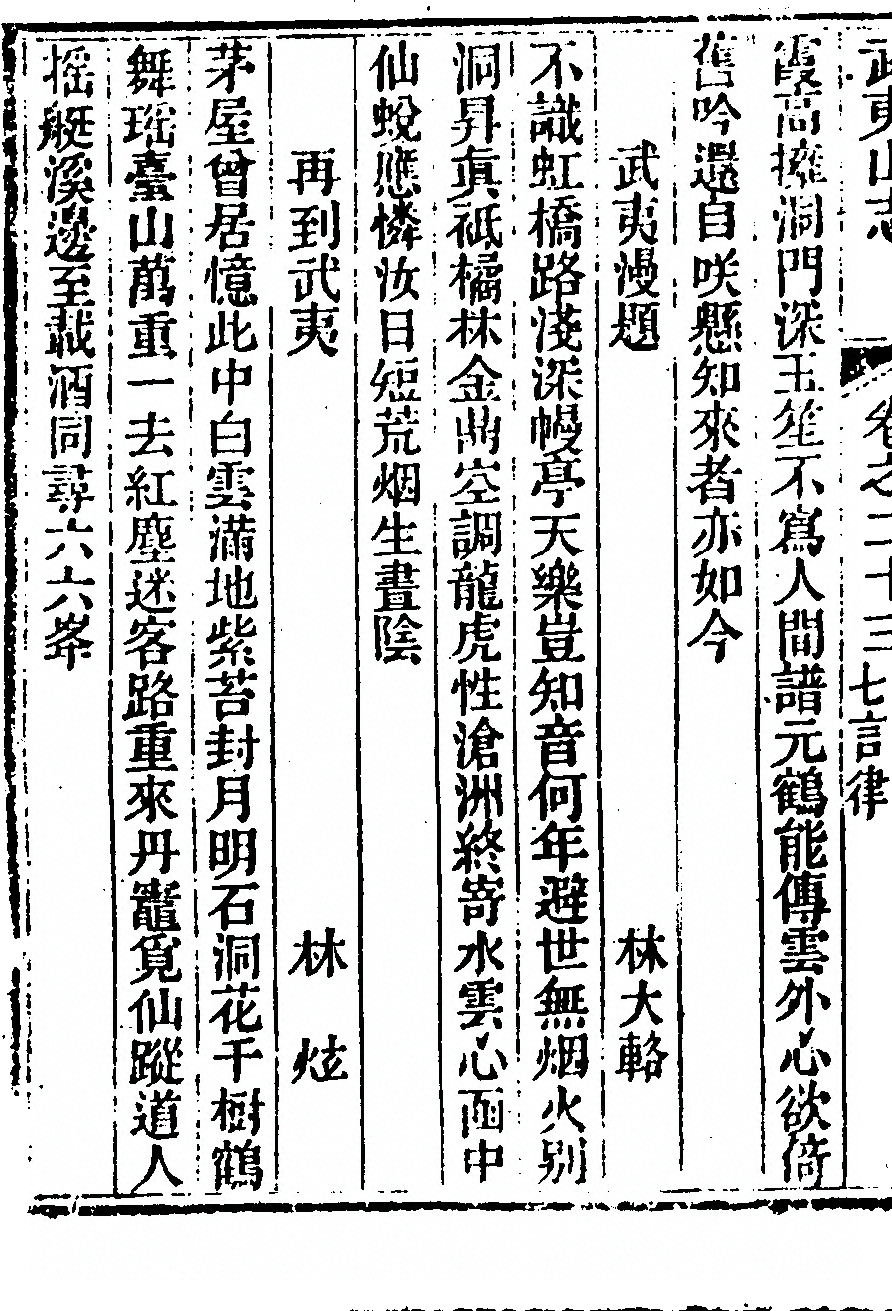 武夷山志 卷之二十三七言律
霞高擁洞門深玉笙不寫人間譜元鶴能傳雲外心欲倚
舊吟還自咲懸知來者亦如今
武夷漫題 林大輅
不識虹橋路淺深幔亭天樂豈知音何年避世無烟火别
洞昇眞祗橘林金鼎空調龍虎性滄洲終寄水雲心函中
仙蛻應憐汝日短荒烟生晝陰
再到武夷 林炫
茅屋曾居憶此中白雲滿地紫苔封月明石洞花千樹鶴
舞瑶臺山萬重一去紅塵迷客路重來丹竈覓仙蹤道人
摇艇溪邊至載酒同尋六六峯